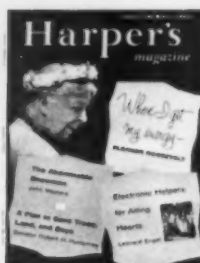 Harper's
magazine
Where I get
my energy
ELEANOR ROOSEVELT
The Abominable
Snowman
John Masters
A Plan to Save Trees,
Land, and Boys
Electronic Helpers
for Ailing
Hearts
Leonard Engel